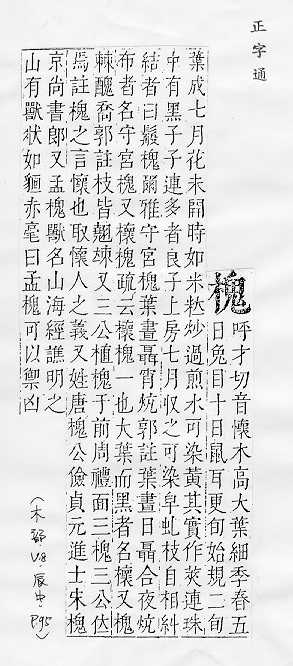 正字通
槐
呼才切音懷木高大葉細季春五
日兔目十日鼠耳更旬始規二旬
葉成七月花未開時如米粒炒過煎水可染黃其實作莢連珠
中有黑子子連多者良子上房七月収之可染皁虬枝自相糾
結者曰鬆槐爾雅守宮槐葉晝聶宵炕郭註葉晝日聶合夜炕
布者名守宮槐又櫰槐疏云櫰槐一也大葉而黑者名櫰又槐
棘醜喬郭註枝皆翹竦又三公植槐于前周禮面三槐三公位
焉註槐之言懷也取懷人之義又姓唐槐公儉貞元進士宋槐
京尚書郎又孟槐獸名山海經譙明之
山有獸狀如貆赤毫曰孟槐可以禦凶
(木部 V8 辰中 P95)